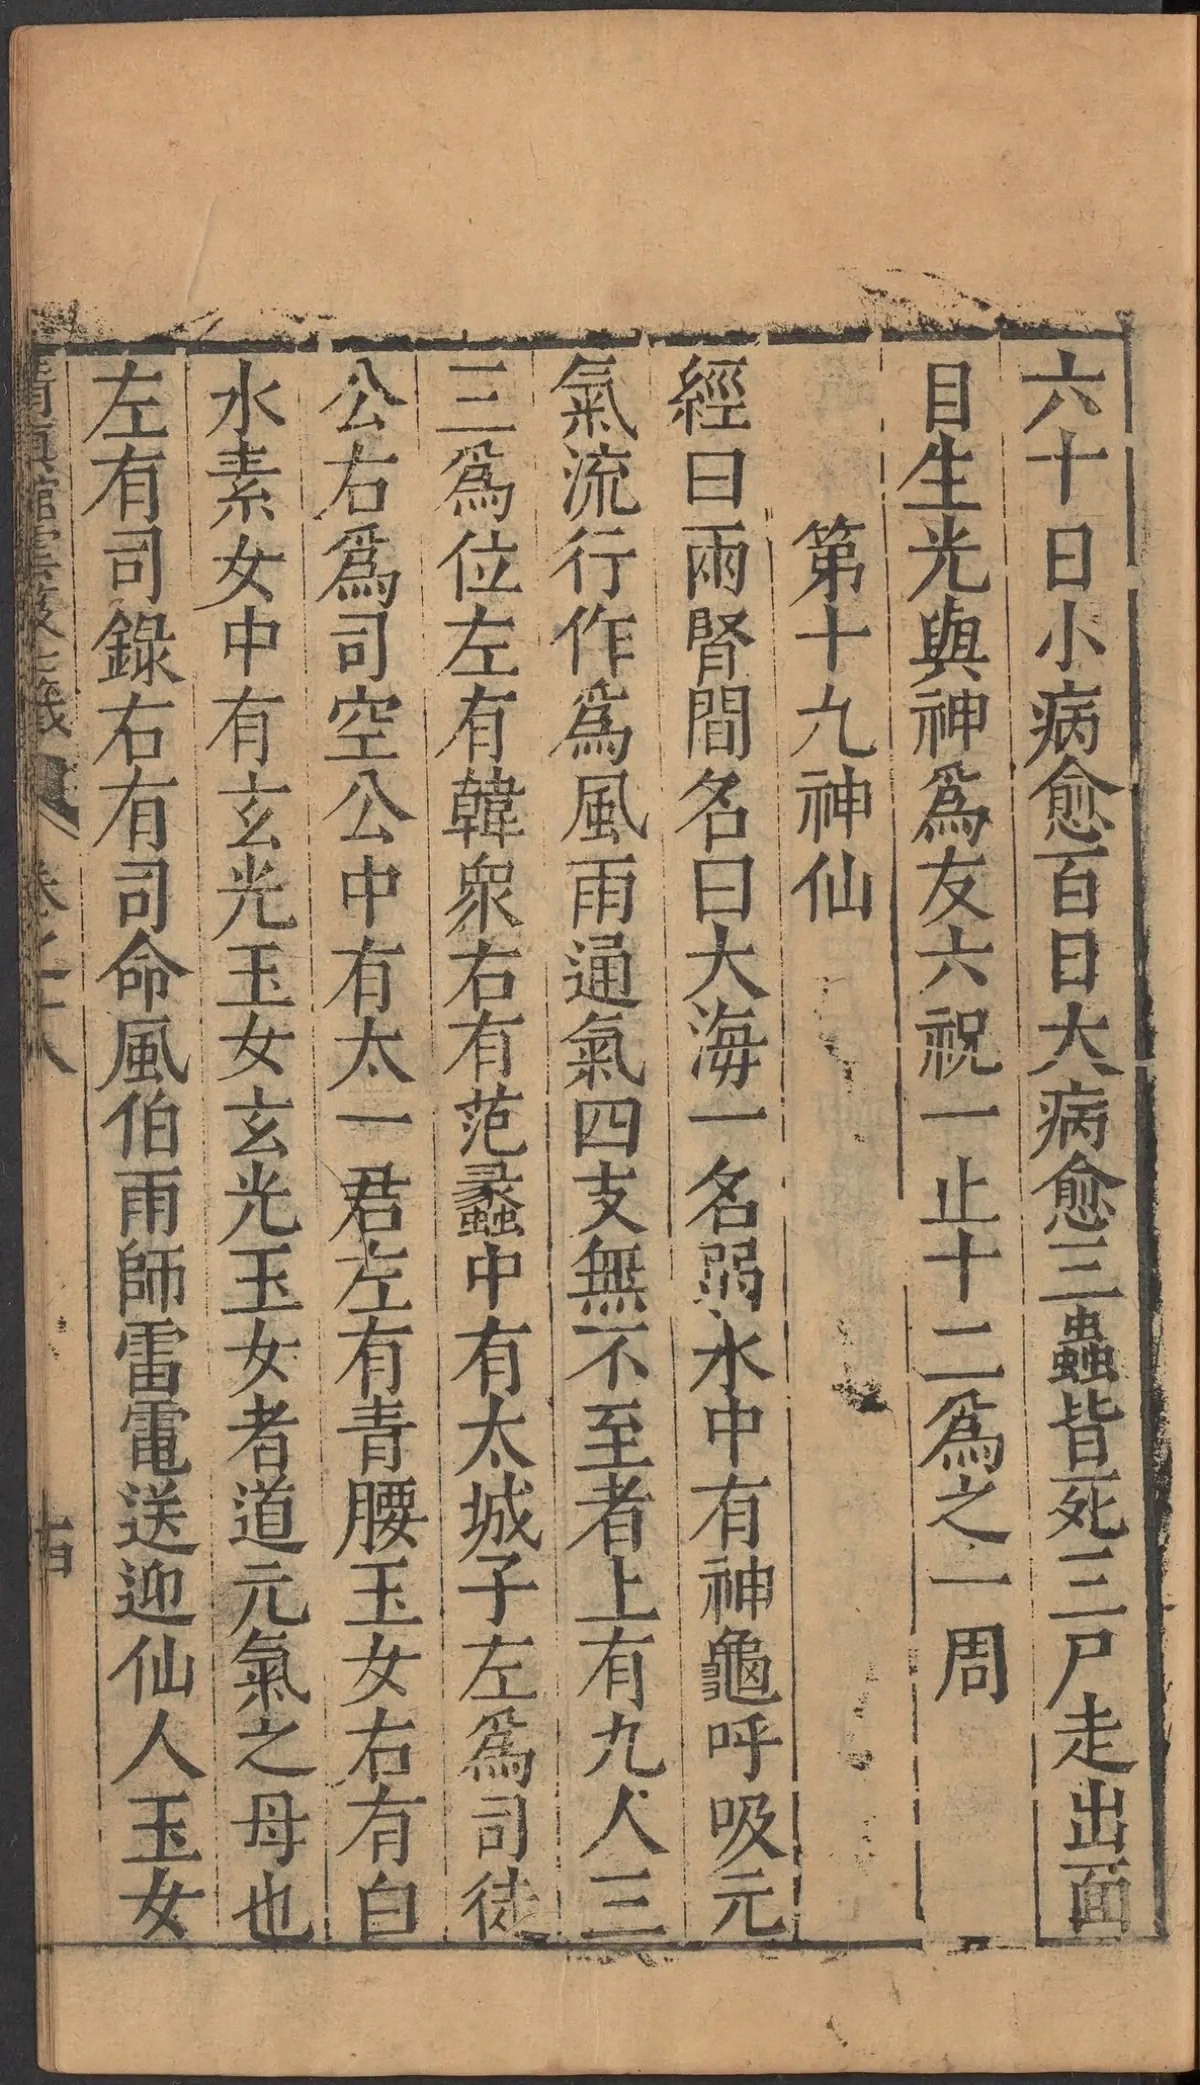 六十日小病愈百日大病愈三蟲皆死三尸走出面
目生光與神爲友六祝一止十二爲之一周
第十九神仙
經曰兩腎間名曰大海一名弱水中有神龜呼吸元
氣流行作爲風雨通氣四支無不至者上有九人三
三爲位左有韓衆右有范蠡中有太城子左爲司徒
公右爲司空公中有太一君左有青腰玉女右有白
水素女中有玄光玉女玄光玉女者道元氣之母也
左有司錄右有司命風伯雨師雷電送迎仙人玉女
清真館雲笈七籤 卷之十八